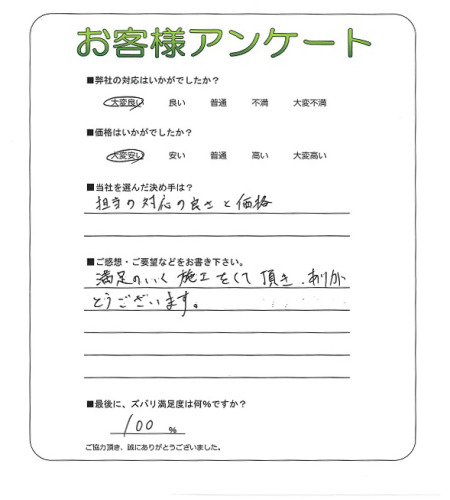 お客様アンケート
■弊社の対応はいかがでしたか？
大変良い 良い 普通 不満 大変不満
■価格はいかがでしたか？
大変安い 安い 普通 高い 大変高い
■当社を選んだ決め手は？
担当の対応の良さと価格
■ご感想・ご要望などをお書き下さい。
満足のいく施工をして頂き、ありが
とうございます。
■最後に、ズバリ満足度は何%ですか？
100 %
ご協力頂き、誠にありがとうございました。